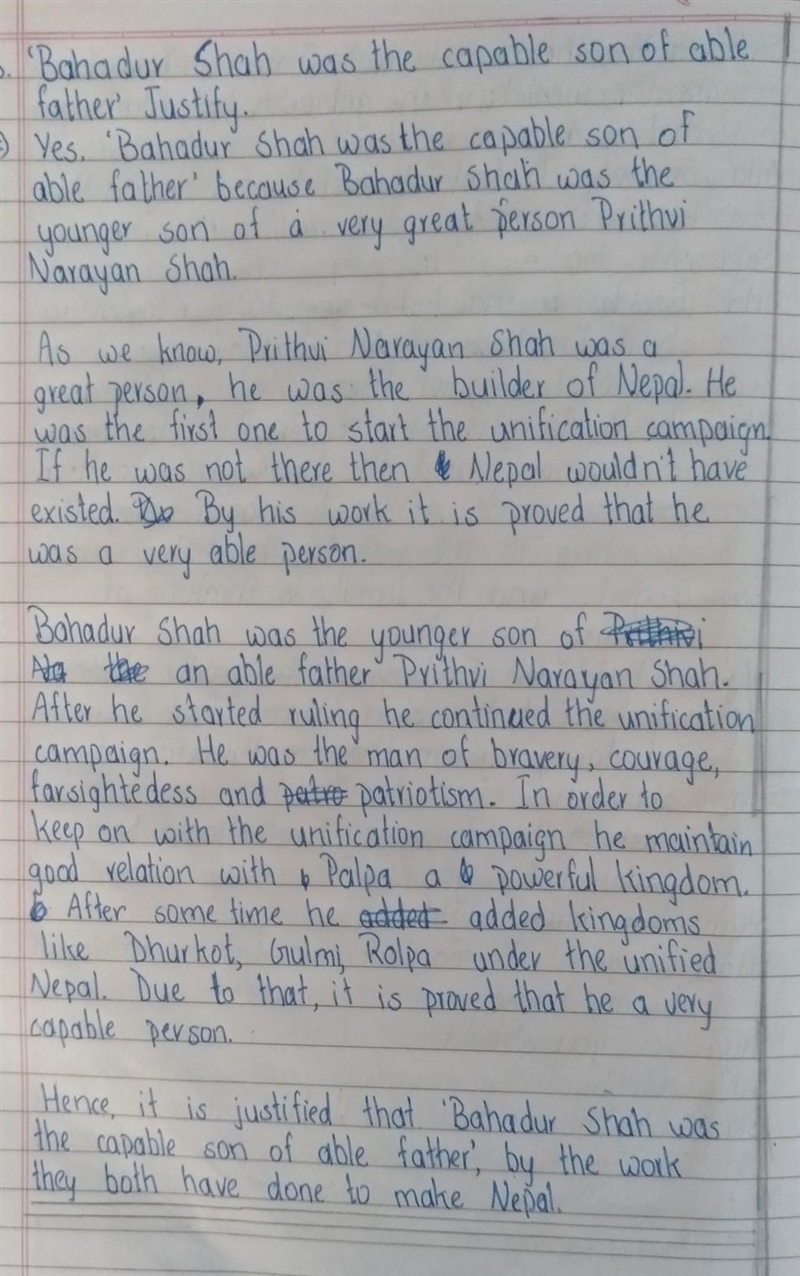 'Bahadur Shah was the capable son of able
father' Justify.
Yes. 'Bahadur Shah was the capable son of
able father' because Bahadur Shah was the
younger son of a very great person Prithvi
Narayan Shah.
As we know, Prithvi Narayan Shah was a
great person, he was the builder of Nepal. He
was the first one to start the unification campaign.
If he was not there then Nepal wouldn't have
existed. By his work it is proved that he
was a very able person.
Bahadur Shah was the younger son of
an able father Prithvi Narayan Shah.
After he started ruling he continued the unification
campaign. He was the man of bravery, courage,
farsightedess and patriotism. In order to
keep on with the unification campaign he maintain
good relation with Palpa a powerful kingdom.
After some time he added kingdoms
like Dhurkot, Gulmi, Rolpa under the unified
Nepal. Due to that, it is proved that he a very
capable person.
Hence, it is justified that 'Bahadur Shah was
the capable son of able father', by the work
they both have done to make Nepal.